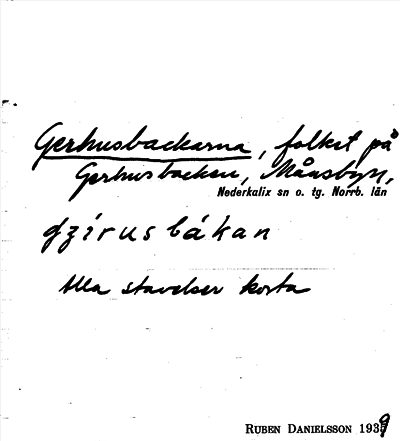 Gerhusbackarna, folket på
Gerhusbacken, Månsbyn,
Nederkalix sn o. tg. Norrb. län
dzírusbákan
Alla stavelser korta
RUBEN DANIELSSON 1939